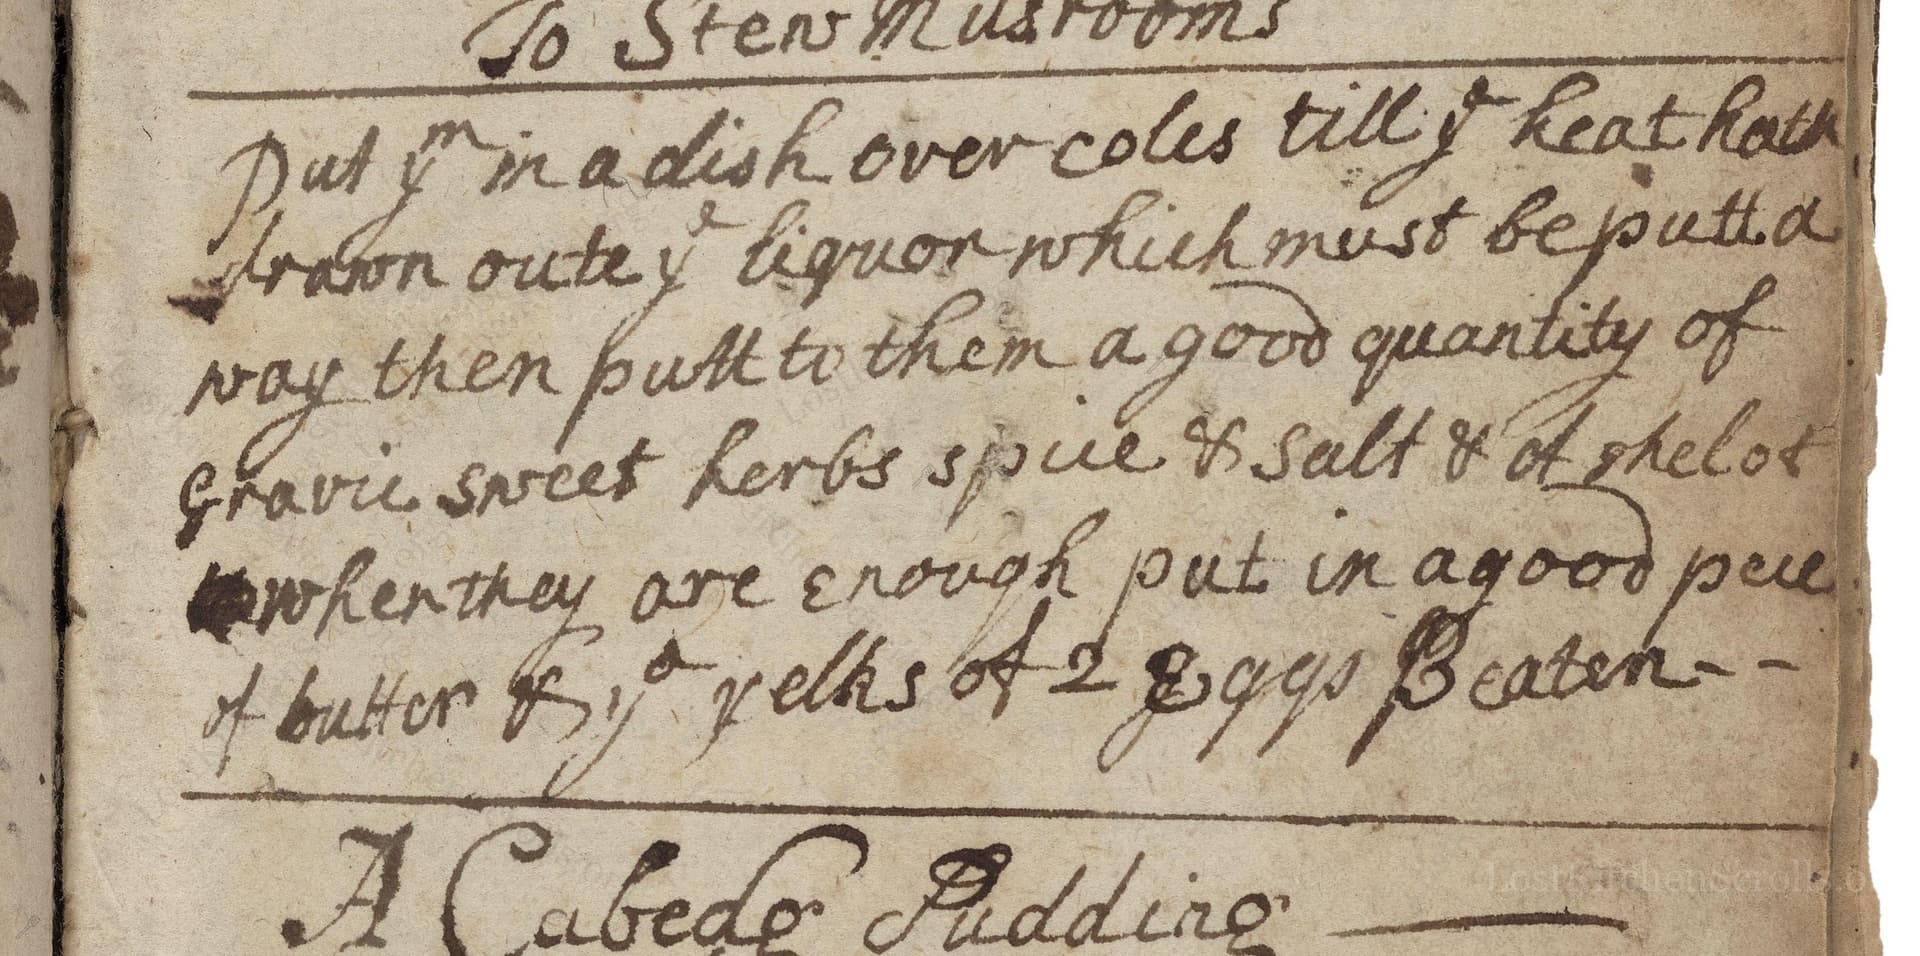 To Stew Musrooms
Put ym in a dish over coles till ye heat hath
drawn oute ye liquor which must be putt a
way then putt to them a good quantity of
Gravie sweet herbs spice & Salt & of shelot
when they are enough put in a good peice
of butter & ye yelks of 2 Eggs Beaten - -
A Cabedg Pudding
LostKitchenScrolls.o